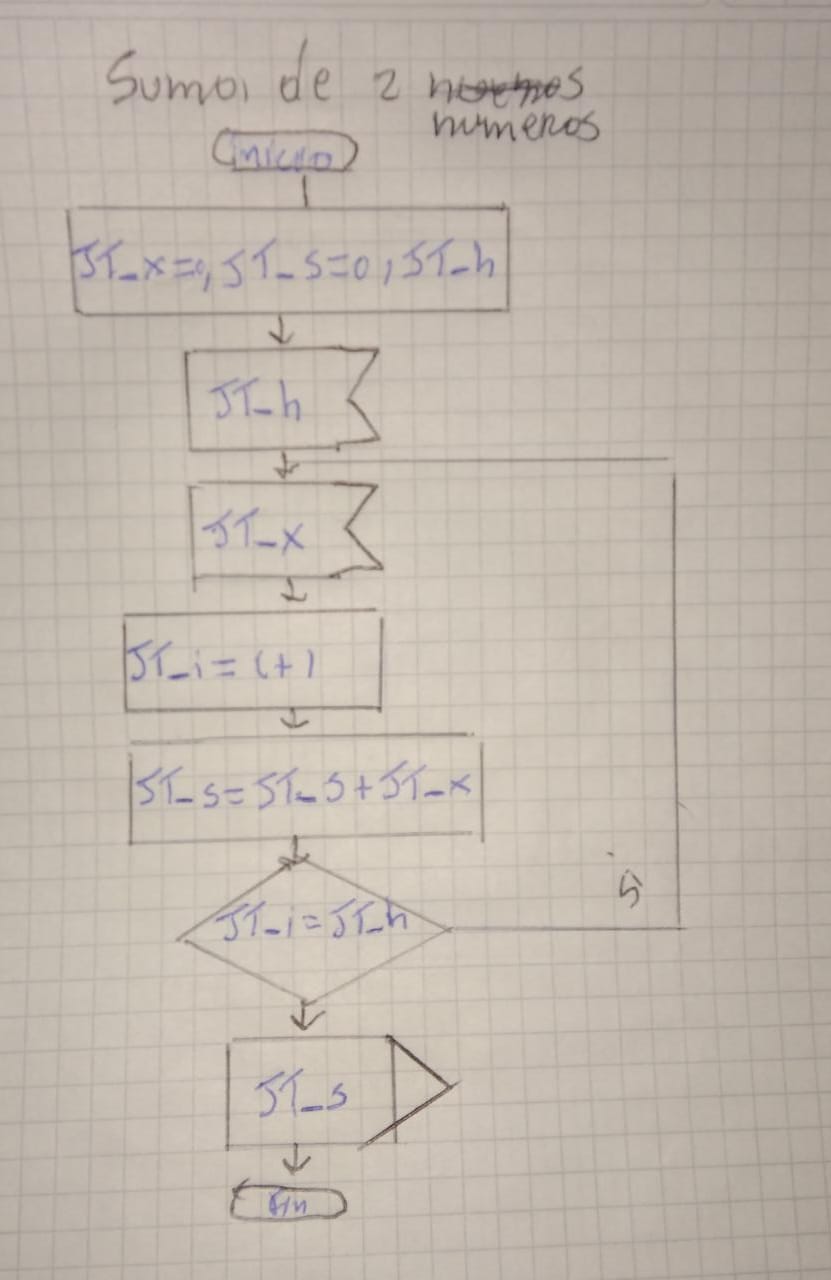 Suma de 2
numeros
inicio
JT_x=0, JT_s=0, JT_h
JT_h
JT_x
JT_i= i+1
JT_s=JT_s+JT_x
JT_i=JT_h
si
JT_s
Fin